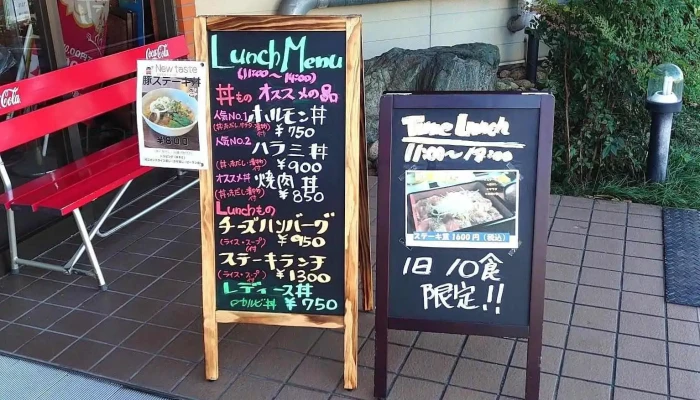 Coca-Cola
Coca-Cola
New taste
豚ステーキ丼
¥800
Lunch Menu
(11:00～14:00)
丼もの オススメの品
人気No.1 ホルモン丼
¥750
人気No.2 ハラミ丼
¥900
オススメ丼 焼肉丼
¥850
Lunchもの
チーズハンバーグ
(ライス・スープ付) ¥950
ステーキランチ
(ライス・スープ付) ¥1300
レディース丼
¥750
Time Lunch
11:00～14:00
ステーキ重 1600円（税込）
1日 10食
限定!!